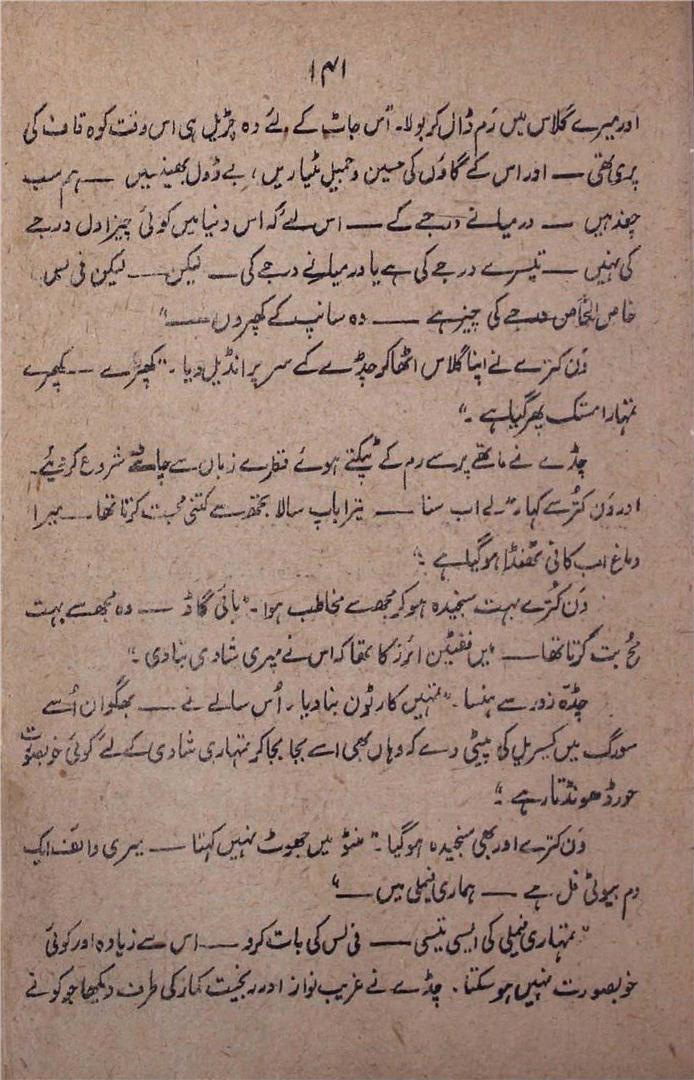 ۱۴۱
اور میرے گلاس میں رَم ڈال کر بولا۔ "اس جاٹ کے لئے وہ چڑیل ہی اس وقت کوہ قاف کی
پری تھی — اور اس کے گاؤں کی حسین و جمیل مٹیاریں، بے ڈول بھینسیں — ہم سب
چغد ہیں — درمیانے درجے کے — اس لئے کہ اس دنیا میں کوئی چیز اول درجے
کی نہیں — تیسرے درجے کی ہے یا درمیانے درجے کی — لیکن — لیکن فی لس
خاص الخاص درجے کی چیز ہے — وہ سانپ کے کھپروں —"
وَن کترے نے اپنا گلاس اٹھا کر چڈے کے سر پر انڈیل دیا۔ "کھپرے — کھپرے
تمہارا مستک پھر گیا ہے۔"
چڈے نے ماتھے پر سے رم کے ٹپکتے ہوئے قطرے زبان سے چاٹنے شروع کر دیئے۔
اور وَن کترے سے کہا۔ "لے اب سنا — تیرا باپ سالا تجھ سے کتنی محبت کرتا تھا — میرا
دماغ اب کافی ٹھنڈا ہو گیا ہے۔"
وَن کترے بہت سنجیدہ ہو کر مجھ سے مخاطب ہوا۔ "بائی گاڈ — وہ مجھ سے بہت
مُح بت کرتا تھا — میں ففٹین ائرز کا تھا کہ اس نے میری شادی بنا دی۔"
چڈہ زور سے ہنسا۔ "تمہیں کارٹون بنا دیا۔ اُس سالے نے — بھگوان اُسے
سورگ میں کیسریل کی پیٹی دے کہ وہاں بھی اسے بجا بجا کر تمہاری شادی کے لئے کوئی خوبصورت
حور ڈھونڈتا رہے۔"
وَن کترے اور بھی سنجیدہ ہو گیا۔ "منٹو میں جھوٹ نہیں کہتا — میری وائف ایک
دم بیوٹی فل ہے — ہماری فیملی میں —"
"تمہاری فیملی کی ایسی تیسی — فی لس کی بات کرو — اس سے زیادہ اور کوئی
خوبصورت نہیں ہو سکتا۔ چڈے نے غریب نواز اور رنجیت کمار کی طرف دیکھا جو کونے